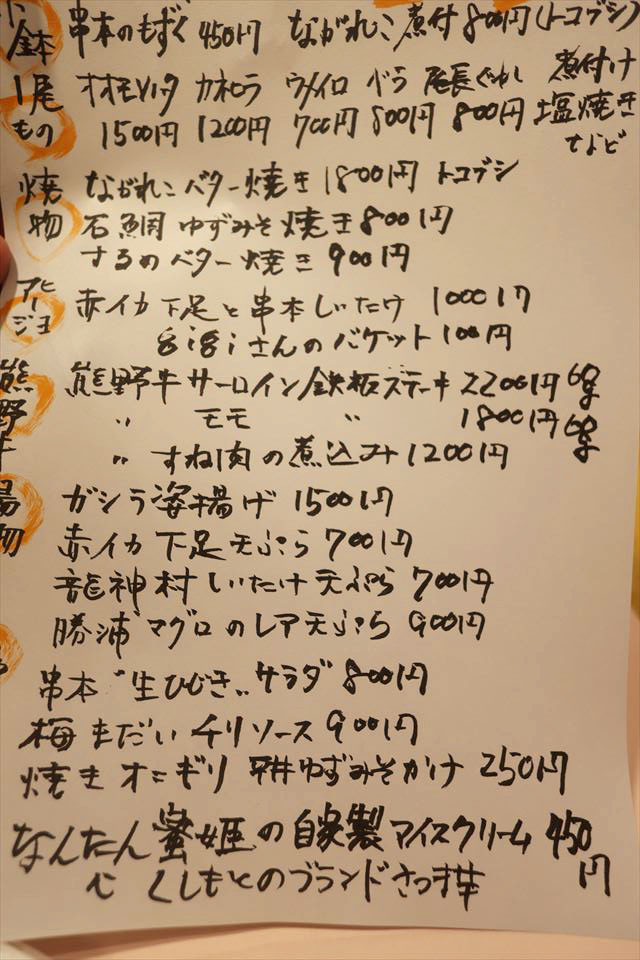 小鉢 串本のもずく 450円 ながれこ煮付 800円(トコブシ)
1尾もの オオモンハタ カネヒラ ウメイロ べラ 尾長ぐれ 煮付け
1500円 1200円 700円 800円 800円 塩焼き
など
焼物 ながれこバター焼き 1800円 トコブシ
石鯛ゆずみそ焼き 800円
するめバター焼き 900円
アヒージョ 赤イカ下足と串本しいたけ 1000円
gigiさんのバケット 100円
熊野牛 熊野牛サーロイン鉄板ステーキ 2200円
〃 モモ 〃 1800円
〃 すね肉の煮込み 1200円
揚物 ガシラ姿揚げ 1500円
赤イカ下足天ぷら 700円
龍神村しいたけ天ぷら 700円
勝浦マグロのレア天ぷら 900円
串本"生ひじき"サラダ 800円
梅まだいチリソース 900円
焼きオニギリ ゆずみそかけ 250円
なんたん蜜姫の自家製アイスクリーム 450円
くしもとのブランドさつま芋